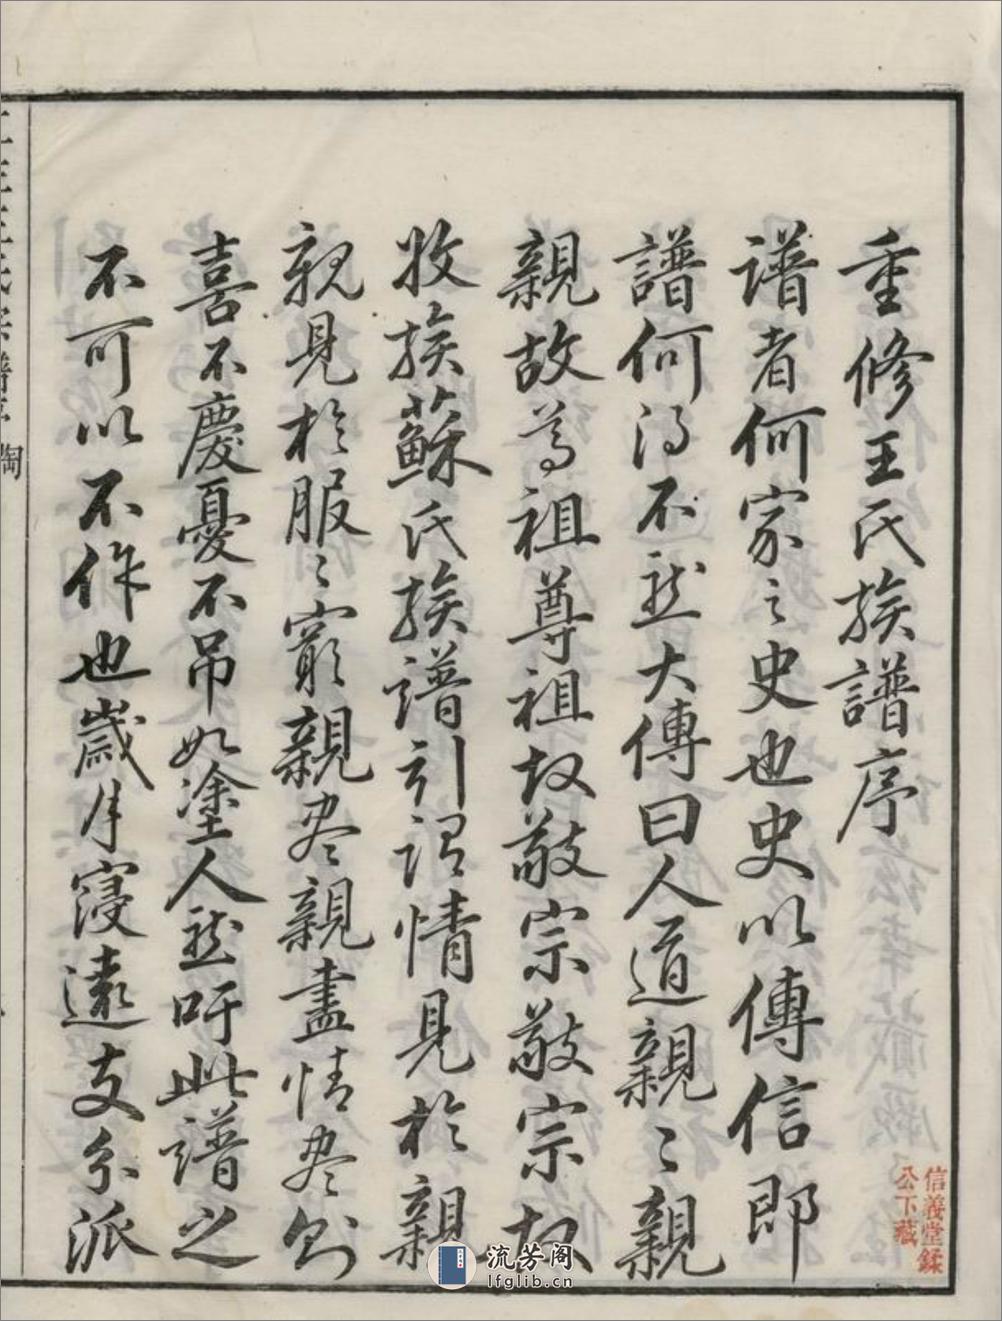 重修王氏族譜序
譜者何家之史也史以傳信即
譜何得不然大傳曰人道親〻親〻
親故尊祖尊祖故敬宗敬宗故
收族蘇氏族譜引謂情見於親
親見於服〻窮親尽親盡情尽則
喜不慶憂不吊如塗人然吁此譜之
不可以不作也歲月寖遠支分派
信義堂鍒
公下藏
流芳阁
lfglib.cn